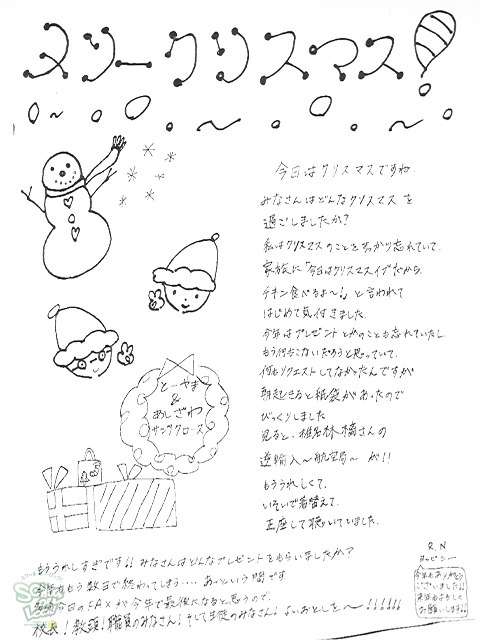 メリークリスマス!
今日はクリスマスですね
みなさんはどんなクリスマスを
過ごしましたか?
私はクリスマスのことをすっかり忘れていて、
家族に「今日はクリスマスイブだから、
チキン食べるよ〜!」と言われて
はじめて気付きました。
今年はプレゼントとかのことも忘れていたし、
もう何もこないだろうと思っていて、
何もリクエストしてなかったんですが
朝起きると紙袋があったので
びっくりしました
見ると、椎名林檎さんの
逆輸入〜航空局〜が!!
もううれしくて、
いそいで着替えて、
正座して聴いていました。
とーやま
&
あしざわ
サンタクロース
もううれしすぎです!! みなさんはどんなプレゼントをもらいましたか?
今年ももう数日で終わってしまう.... あっという間です
多分今日のFAXが今年で最後になると思うので、
校長!教頭!職員のみなさん!そして生徒のみなさん!よいおとしを〜!!!!!!
R.N
今年もありがとう
ございました!!
来年もよろしく
お願いします!!